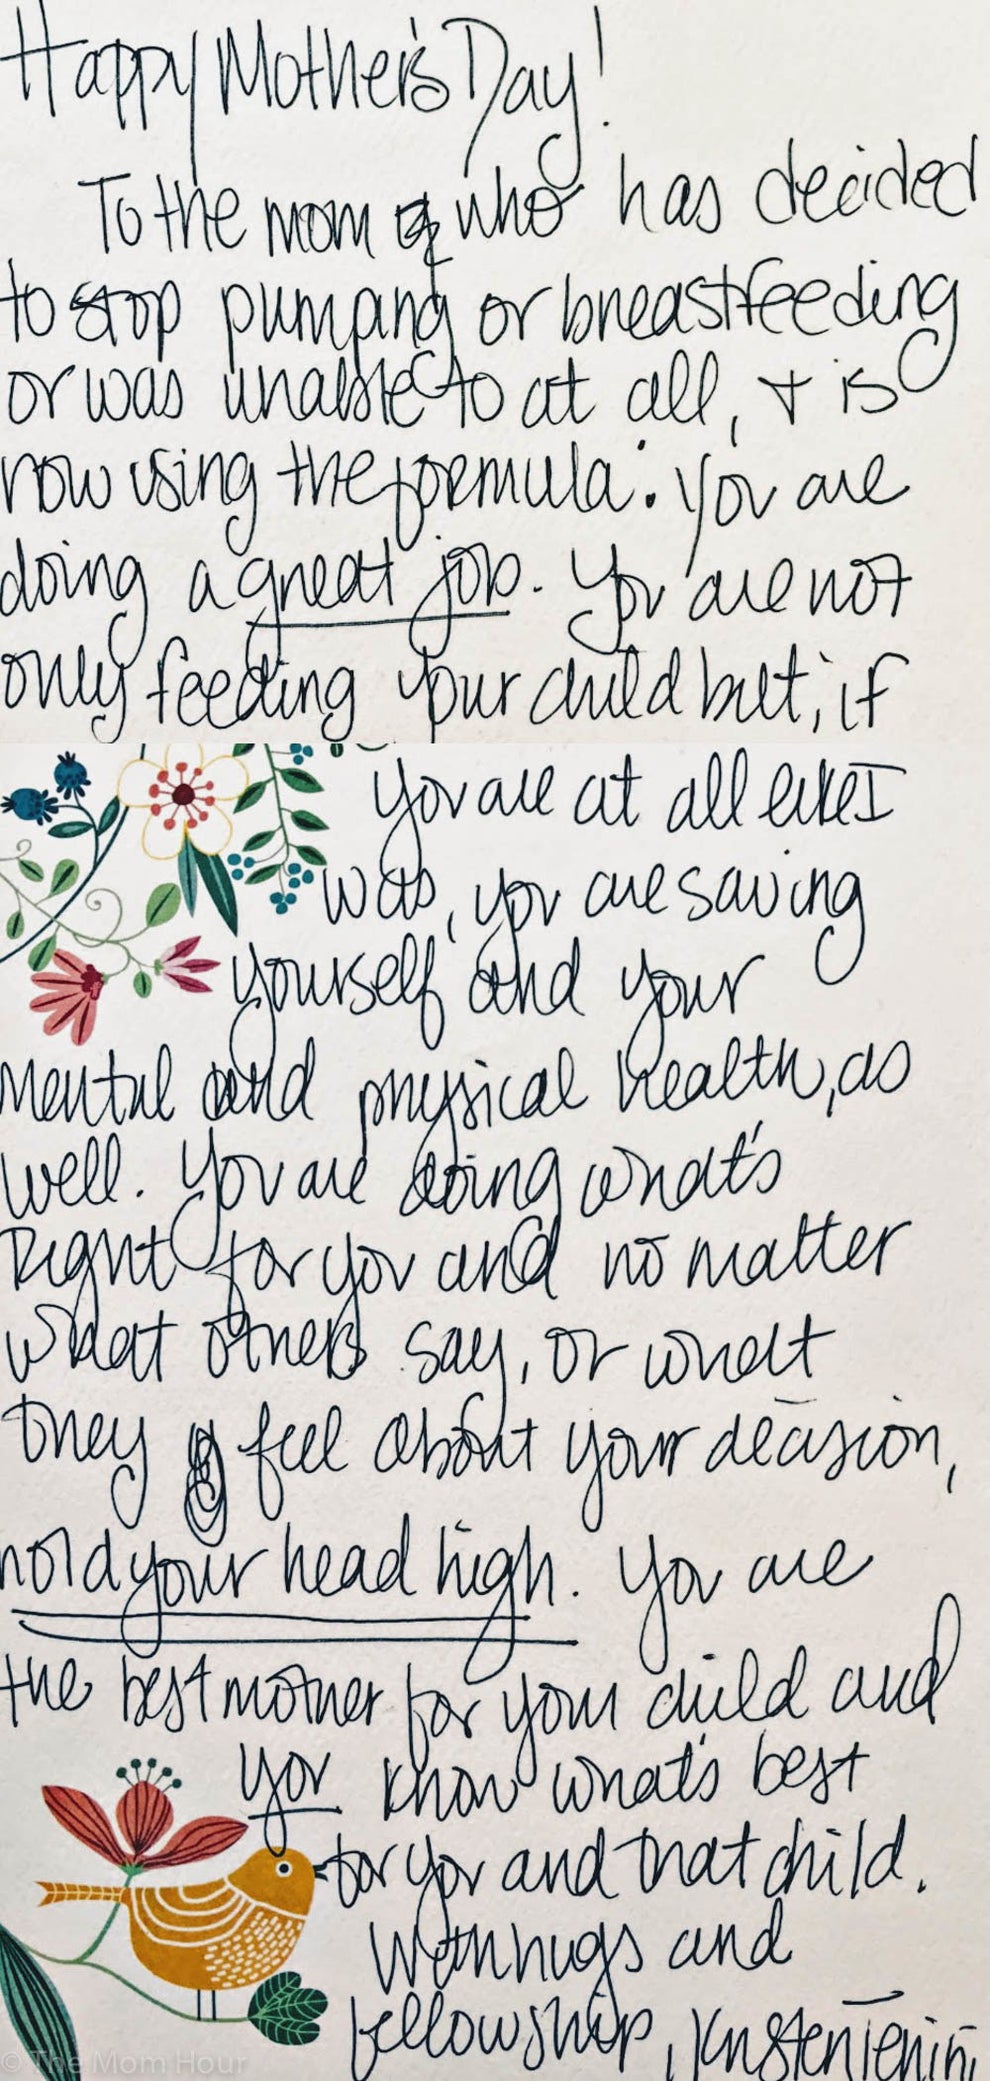 Happy Mother's Day!
To the mom who has decided
to stop pumping or breastfeeding
or was unable to at all, + is
now using the formula: You are
doing a great job. You are not
only feeding your child but, if
you are at all like I
was, you are saving
yourself and your
mental and physical health, as
well. You are doing what's
right for you and no matter
what others say, or what
they feel about your decision,
hold your head high. You are
the best mother for your child and
you know what's best
for you and that child.
With hugs and
fellowship, Kristen
© The Mom Hour